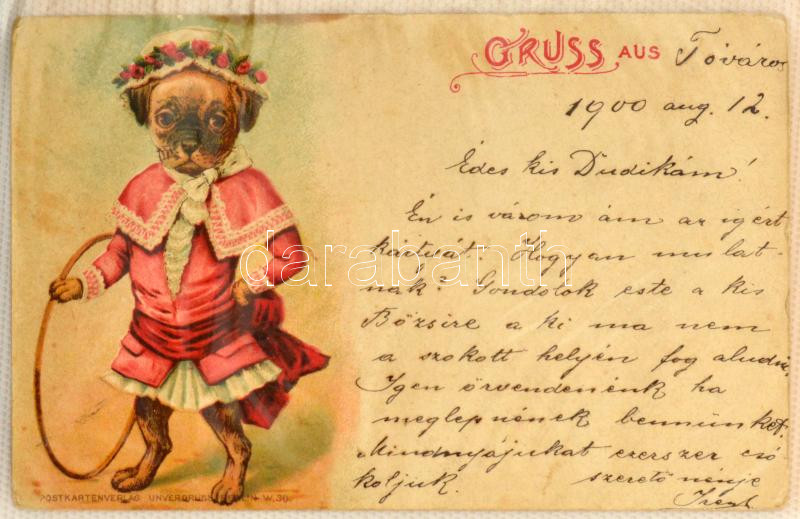 GRUSS AUS Tóváros
1900 aug. 12.
Édes kis Dudikám!
Én is várom ám az igért
kártyát. Hogyan mulat-
nak? Gondolok este a kis
Bözsire a ki ma nem
a szokott helyén fog aludni.
Igen örvendenénk ha
meglepnének bennünket.
Mindnyájukat ezerszer csó
koljuk. szerető nénje
darabanth
POSTKARTENVERLAG UNVERDRUSS BERLIN W. 30.